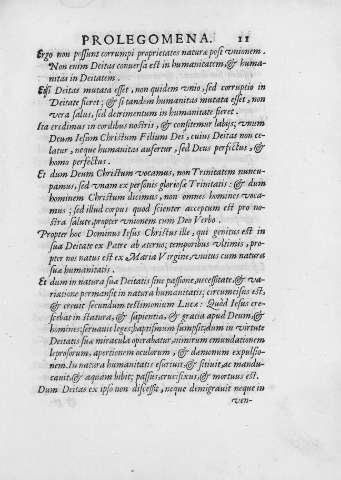 PROLEGOMENA. 11
Ergo non possunt corrumpi proprietates naturæ post vnionem.
Non enim Deitas conuersa est in humanitatem, & huma-
nitas in Deitatem.
Etsi Deitas mutata esset, non quidem vnio, sed corruptio in
Deitate fieret; & si tandem humanitas mutata esset, non
vera salus, sed detrimentum in humanitate fieret.
Ita credimus in cordibus nostris, & confitemur labijs; vnum
Deum Iesum Christum Filium Dei, cuius Deitas non ce-
latur, neque humanitas aufertur, sed Deus perfectus, &
homo perfectus.
Et dum Deum Christum vocamus, non Trinitatem nuncu-
pamus, sed vnam ex personis gloriosæ Trinitatis: & dum
hominem Christum dicimus, non omnes homines voca-
mus; sed illud corpus quod scienter acceptum est pro no-
stra salute, propter vnionem cum Deo Verbo.
Propter hoc Dominus Iesus Christus ille, qui genitus est in
sua Deitate ex Patre ab æterno; temporibus vltimis, pro-
pter nos natus est ex Maria Virgine, vnitus cum natura
sua humanitatis.
Et dum in natura sua Deitatis sine passione, necessitate, & va-
riatione permansit in natura humanitatis; circumcisus est,
& creuit secundum testimonium Lucæ: Quòd Iesus cre-
scebat in statura, & sapientia, & gratia apud Deum, &
homines: seruauit leges; baptismum sumpsit; dum in virtute
Deitatis suæ miracula operabatur, nimirum emundationem
leprosorum, apertionem oculorum, & dæmonum expulsio-
nem. In natura humanitatis esuriuit, & sitiuit, ac mandu-
cauit, & aquam bibit; passus, crucifixus, & mortuus est.
Dum Deitas ex ipso non discessit, neque demigrauit neque in
ven-